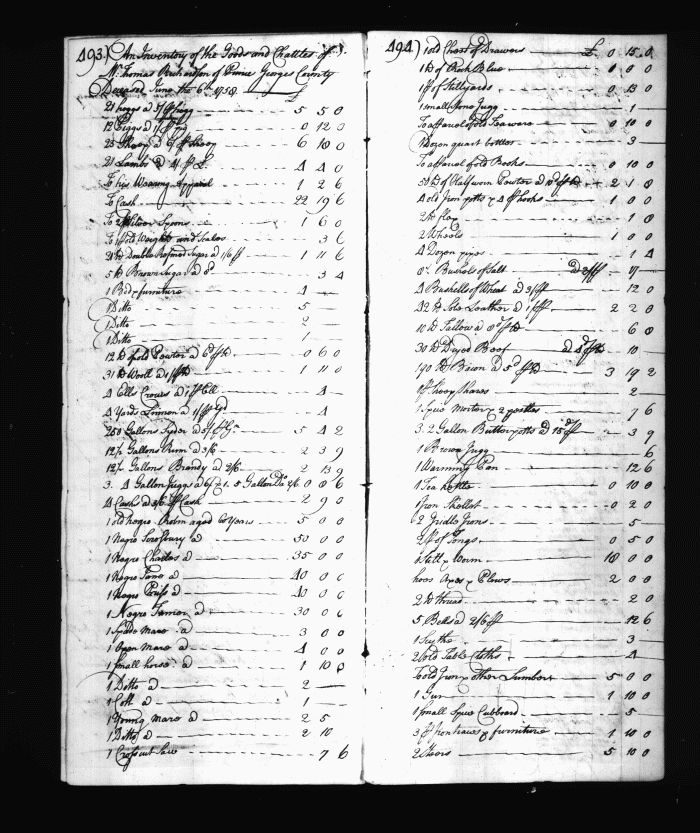 493) An Inventory of the Goods and Chattles of
Mr Thomas Richardson of Prince Georges County
Deceased June the 6th 1758 £
21 hoggs a 5/ 5 5 0
12 Piggs a 1/ 0 12 0
23 Sheep a 6/ Sheep 6 18 0
21 Lambs a 4/ 4 4 0
To his Wearing Apparel 1 2 6
To Cash 22 19 6
To Silver Spoons 1 6 0
To Weights and Scales 3 6
21 lb Double Refined Sugar a 1/6 1 11 6
5 lb Brown Sugar a 8 3 4
1 Bed & furniture 4 —
1 Ditto 5 —
1 Ditto 2 —
1 Ditto 1 —
12 lb old Pewter a 6d 0 6 0
31 lb Wooll a 1/ 1 11 0
4 Ells a 1/ Ell 4
4 Yards Linnen a 1/ Yd 4
250 Gallons Syder a 5 4 2
12 1/2 Gallons Rum a 3/6 2 3 9
12 1/2 Gallons Brandy a 2 13 9
3. 4 Gallon Juggs a 1. 5 Gallon Do 2/6 0 8 6
Cash a 3/6 Cash 2 9 0
1 old Negro aged 60 Years 5 0 0
1 Negro a 50 0 0
1 Negro Charles a 35 0 0
1 Negro a 40 0 0
1 Negro a 40 0 0
1 Negro a 30 0 0
1 Mare a 3 0 0
1 Mare a 4 0 0
1 Small horse a 1 10 0
1 Ditto a 2 —
1 Colt a 1 —
1 Young Mare a 2 5
1 Ditto a 2 10
1 Cross cut Saw 7 6
494) 1 old Chest of Drawers £ 0 15 0
1 lb of Rock Blue 0 0
1 pr of Stillyards 0 13 0
1 Small Stone Jugg 1 —
To a parcel of old Teaware 0 10 0
1 Dozen quart bottles 3 —
To a parcel of old Books 0 10 0
50 lb of Half worn Pewter a 10 lb 2 1 8
4 old Iron potts & 4 hooks 1 0 0
lb flax 1 8
2 Wheels 1 0 0
4 Dozen pipes 1 4
Bushels of Salt a 17 —
4 Bushells of Wheat a 3/ 12 0
42 lb Sole Leather a 1/ 2 2 0
10 lb Tallow a 8d lb 6 8
30 lb Dryed Beef a 4d lb 10 —
190 lb Bacon a 5d lb 3 19 2
pr Sheep Shares 2 —
1 Spice Morter & 2 pestles 7 6
3. 2 Gallon Butter potts a 15d 3 9
1 Brown Jugg 6
1 Warming Pan 12 6
1 Tea kettle 0 10 0
1 Iron Skellet 0 2 0
2 Gridle Irons 5 —
2 pr of Tongs 0 5 0
Still & Worm 18 0 0
hoes Axes & Plows 2 0 0
2 lb thread 2 0
5 Bells a 2/6 12 6
1 Scythe 3 —
2 old Table Cloths 4
To old Iron & other Lumber 5 0 0
1 Gun 1 10 0
1 Small Spice Cubboard 5 —
3 & furniture 1 10 0
2 Steers 5 10 0